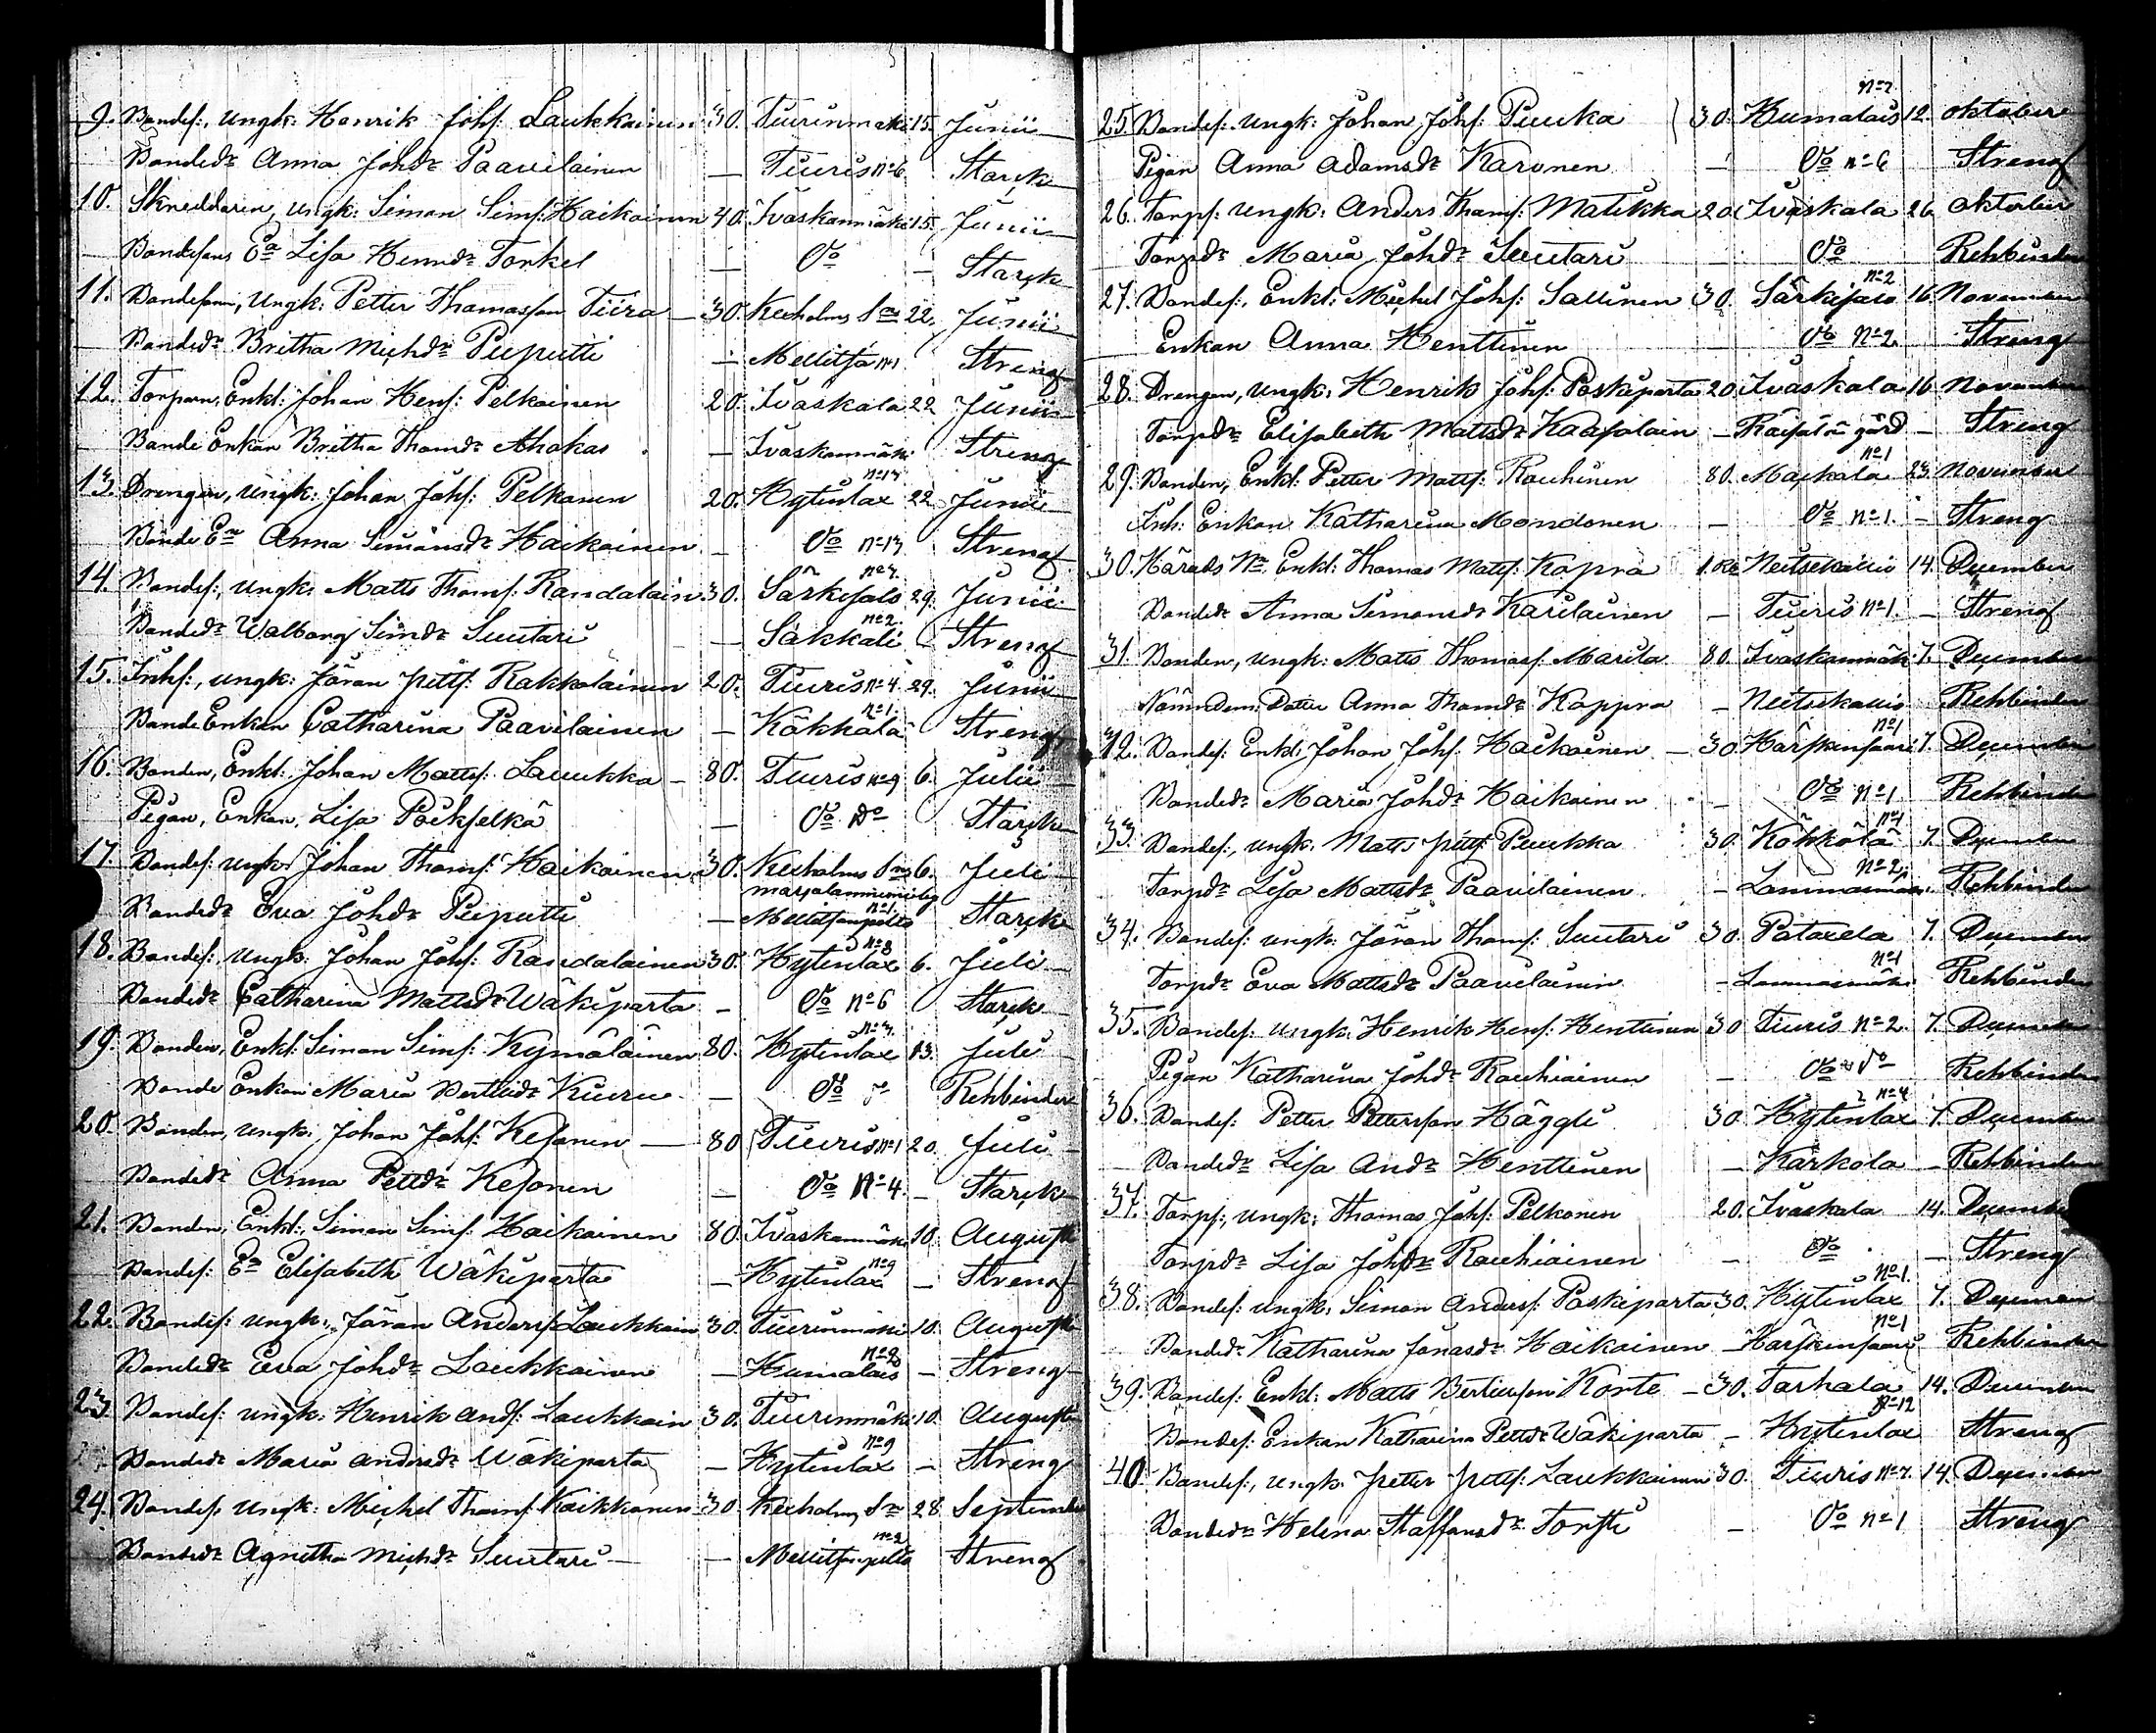 9. Bondes:, ungk: Henrik Johs: Laukkainen 30. Tiurinmäki 15. Junii
Bondedr Anna Johdr Paavilainen — Tiuris no 6 Starck
10. Skreddaren, ungk: Simon Sims: Haikainen 40. Ivaskanmäki 15. Junii
Bondesons Ea Lisa Henrdr Torkel — Do — Starck
11. Bondeson, Ungk: Petter Thomasson Tiira — 30. Kexholms Sn 22. Junii
Bondedr Britha Michdr Piiputti — Mellitsä no 1 Streng
12. Torparn, Enkl: Johan Hens: Pelkoinen 20. Ivaskala 22 Junii
Bonde Enkan Britha Thomdr Ahokas — Ivaskanmäki Streng
13. Drengen, ungk: Johan Johs: Pelkonen 20. Hytinlax no 13 22 Junii
Bonde En Anna Simonsdr Haikainen — Do no 13 Streng
14. Bondes:, ungk: Matts Thoms: Randalain 30. Särkisalo 29. Junii
Bondedr Walborg Simdr Suutari — Säkkäli no 2. Streng
15. Inhs:, ungk: Jöran Petts: Rakkolainen 20. Tiuris no 4. 29. Junii
Bonde Enkan Catharina Paavilainen — Kökkölä no 1. Streng
16. Bonden, Enkl: Johan Matts: Laukka — 80. Tiuris no 9 6. Julii
Pigan, Enkan, Lisa — Do Do Starck
17. Bondes: ungk: Johan Thoms: Haikainen 30. Kexholms Sn 6. Juli
Bondedr Eva Johdr Piiputti — Mellitsänpelto no 1. Starck
18. Bondes:, Ungk: Johan Johs: Randalainen 30. Hytinlax no 8 6. Juli
Bondedr Catharina Mattsdr Wäkiparta — Do no 6 Starck
19. Bonden, Enkl: Simon Sims: Kymäläinen 80. Hytinlax 13. Juli
Bonde Enkan Maria Bertilsdr Kiuru — Do Rehbinder
20. Bonden, ungk: Johan Johs: Kesonen — 80 Tiuris no 1 20. Juli
Bondedr Anna Pettdr Kesonen — Do No 4. — Starck
21. Bonden, Enkl: Simon Sims: Haikainen 80. Ivaskanmäki 10. Augusti
Bondes: En Elisabeth Wäkiparta — Hytinlax no 9 — Streng
22. Bondes: ungk: Jöran Anders: Laukkain 30. Tiurinmäki 10. Augusti
Bondedr Eva Johdr Laukkainen — Humalais no 2 — Streng
23 Bondes: ungk: Henrik Ands: Laukkain 30. Tiurinmäki 10. Augusti
Bondedr Maria Andersdr Wäkiparta — Hytinlax no 9 — Streng
24. Bondes. ungk: Michel Thoms: Kaikkonen 30. Kexholms Sn 28. September
Bondedr Agnetha Michdr Suutari — Mellitsänpelto no 2 Streng
25. Bondes: ungk: Johan Johs: Puukka 30. Humalais no 2. 12. Oktober
Pigan Anna Adamsdr Karonen — Do no 6 Streng
26. Torps: ungk: Anders Thoms: Matikka 20. Ivaskala 26 Oktober
Torpdr Maria Johdr Suutari — Do Rehbinder
27. Bondes:, Enkl: Michel Johs: Sallinen 30. Särkisalo no 2 16 November
Enkan Anna Henttinen — Do No 2. Streng
28. Drengen, ungk: Henrik Johs: Paskiparta 20. Ivaskala 16 November
Torpdr Elisabeth Mattsdr Kaasalain — Räisälä gård — Streng
29. Bonden, Enkl: Petter Matts: Rauhinen 80. Maskala no 1 23. November
Inh: Enkan Katharina Mondonen — Do no 1. — Streng
30. Härads Nm Enkl: Thomas Matts: Kopra Neitsekallio 14. December
Bondedr Anna Simonsdr Karilainen — Tiuris no 1. — Streng
31. Bonden, ungk: Matts Thomass: Marila 80. Ivaskanmäki 7. December
Nämndem: Dotter Anna Thomdr Kappra — Neitsekallio Rehbinder
32. Bondes: Enkl: Johan Johs: Haikainen — 30. Harskinsaari no 1 7. December
Bondedr Maria Johdr Haikainen — Do no 1 Rehbinder
33. Bondes:, ungk: Matts Petts: Puukka 30. Kökkölä no 1 7. December
Torpdr Lisa Mattsdr Paavilainen — Lammasmäki no 2. Rehbinder
34. Bondes: ungk: Jöran Thoms: Suutari 30. Pataxela 7. December
Torpdr Eva Mattsdr Paavilainen — Lammasmäki no 1 Rehbinder
35. Bondes: ungk: Henrik Hens: Henttinen 30 Tiuris no 2. 7. December
Pigan Katharina Johdr Rauhiainen — Do Do Rehbinder
36. Bondes: Petter Pettersson Häggli 30. Hytinlax no 4 7. December
Bondedr Lisa Anddr Henttinen — Kärkola — Rehbinder
37. Torps:, ungk: Thomas Johs: Pelkonen 20. Ivaskala 14. December
Torpdr Lisa Johsdr Rauhiainen — Do — Streng
38. Bondes: ungk: Simon Anders: Paskiparta 30. Hytinlax no 1. 7. December
Bondedr Katharina Jonasdr Haikainen — Harskinsaari no 1 Rehbinder
39. Bondes: Enkl: Matts Bertilsson Korte — 30. Tarkala 14. December
Bondes: Enkan Katharina Pettdr Wäkiparta — Hytinlax No 12 Streng
40 Bondes:, ungk: Petter Petts: Laukkainen 30. Tiuris no 7. 14. December
Bondedr Helena Staffansdr Torsti — Do no 1 Streng